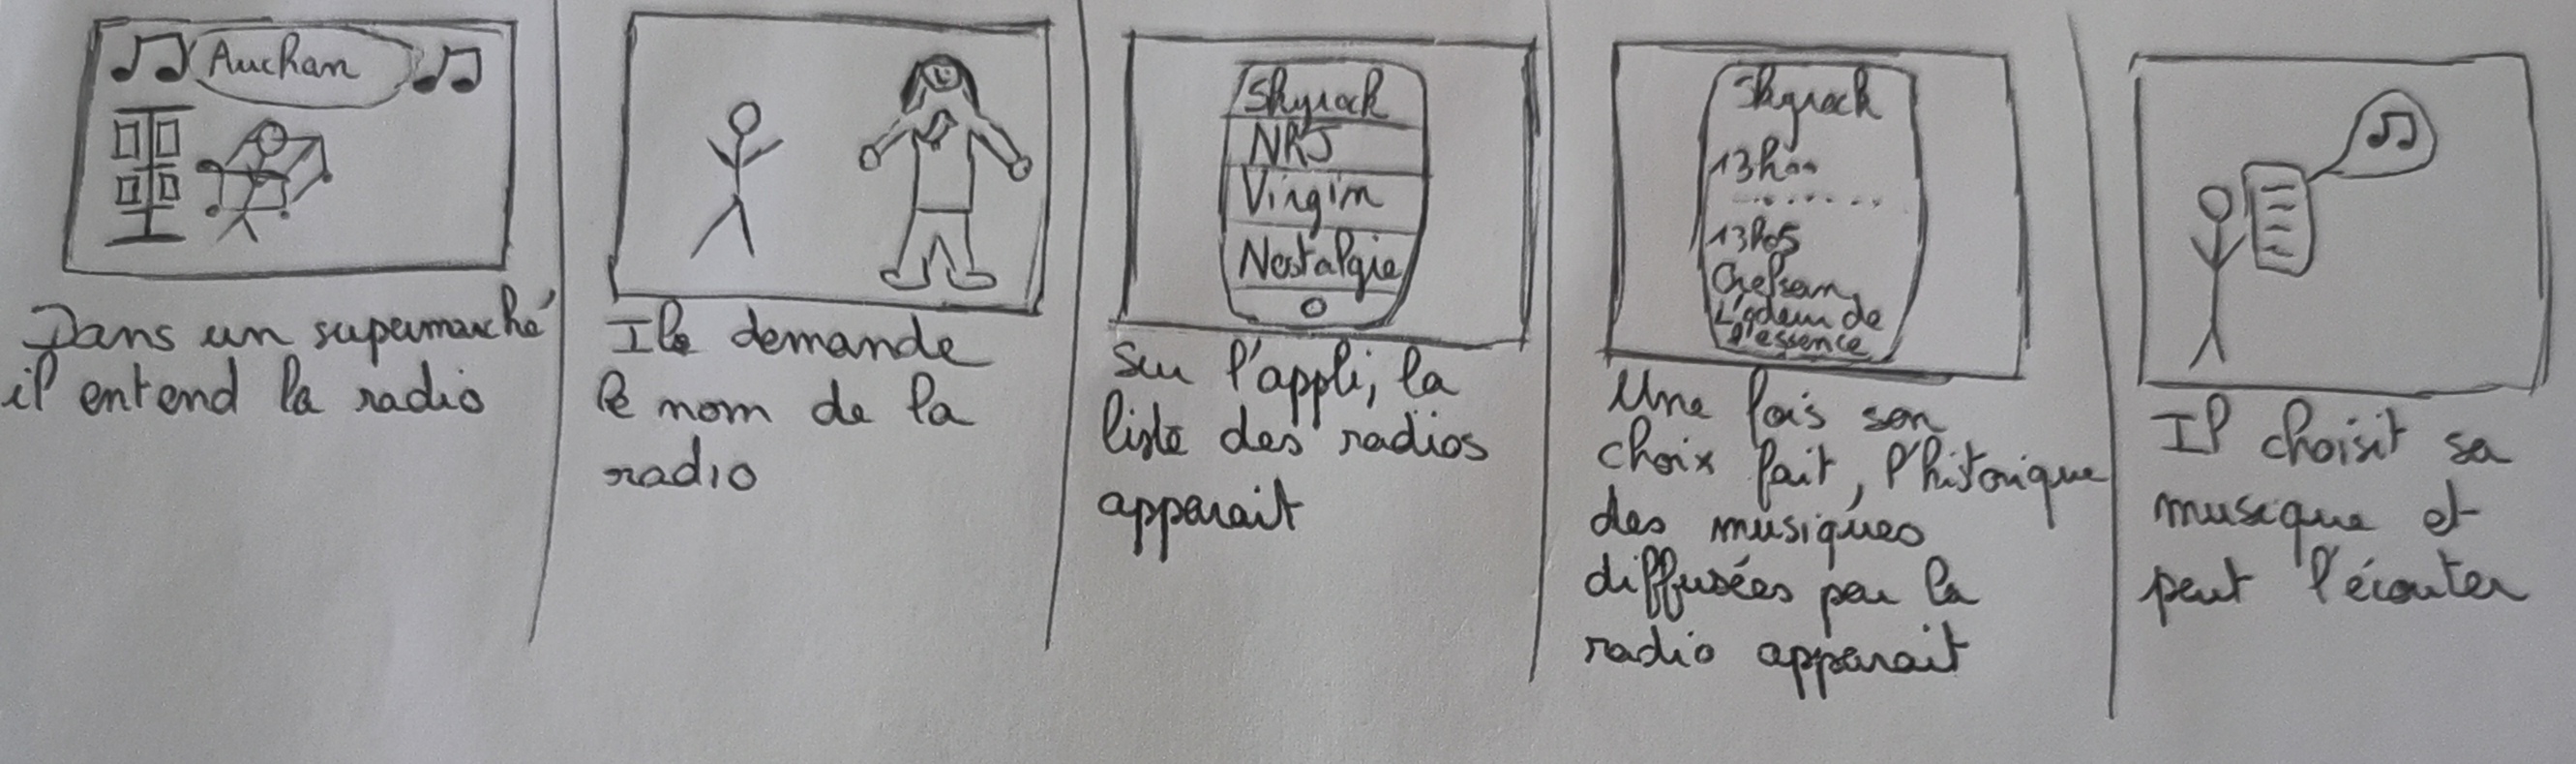 Auchan
Dans un supermarché
il entend la radio
Il demande
le nom de la
radio
Skyrock
NRJ
Virgin
Nostalgie
Sur l'appli, la
liste des radios
apparait
Skyrock
13h00
.......
13h05
Orelsan
L'odeur de
l'essence
Une fois son
choix fait, l'hitorique
des musiques
diffusées par la
radio apparait
Il choisit sa
musique et
peut l'écouter